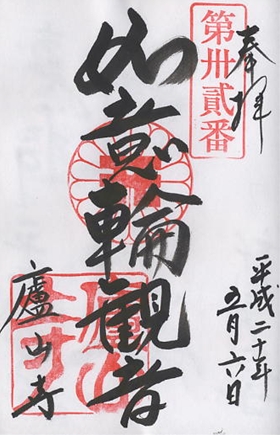 奉拝
第卅貳番
平成二十年
五月六日
如意輪観音
廬山寺